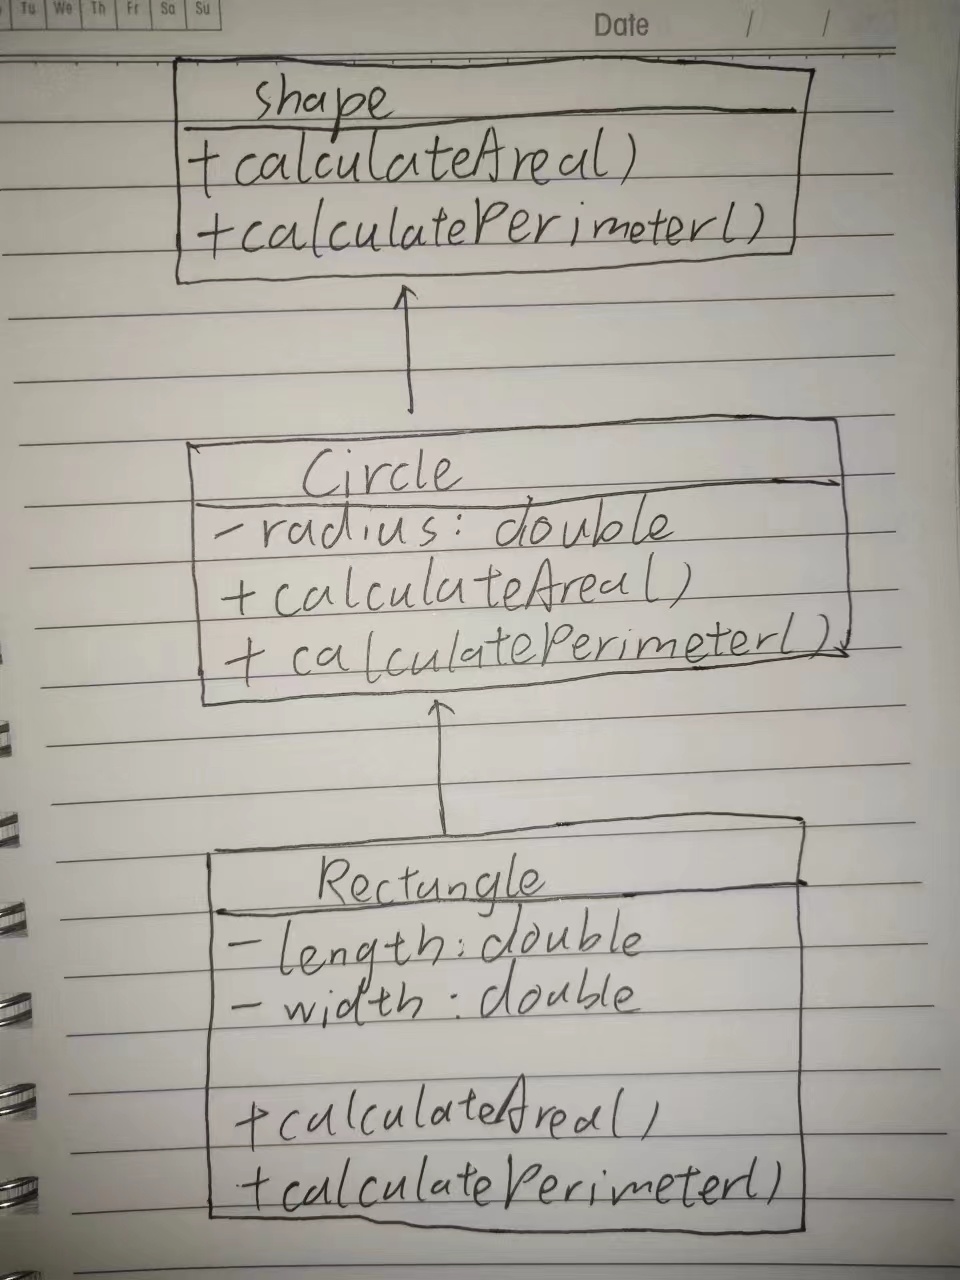 Tu We Th Fr Sa Su
Date / /
shape
+calculateArea()
+calculatePerimeter()
Circle
- radius: double
+ calculateArea()
+ calculatePerimeter()
Rectangle
- length: double
- width: double
+calculateArea()
+calculatePerimeter()